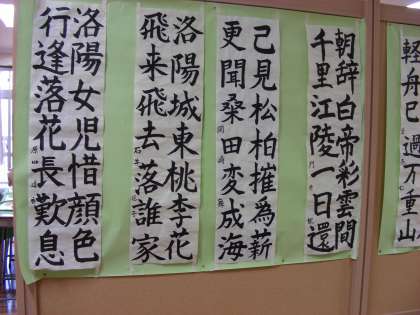 軽舟已過万重山
朝辞白帝彩雲間
千里江陵一日還
己見松柏摧為薪
更聞桑田変成海
洛陽城東桃李花
飛来飛去落誰家
洛陽女児惜顔色
行逢落花長歎息